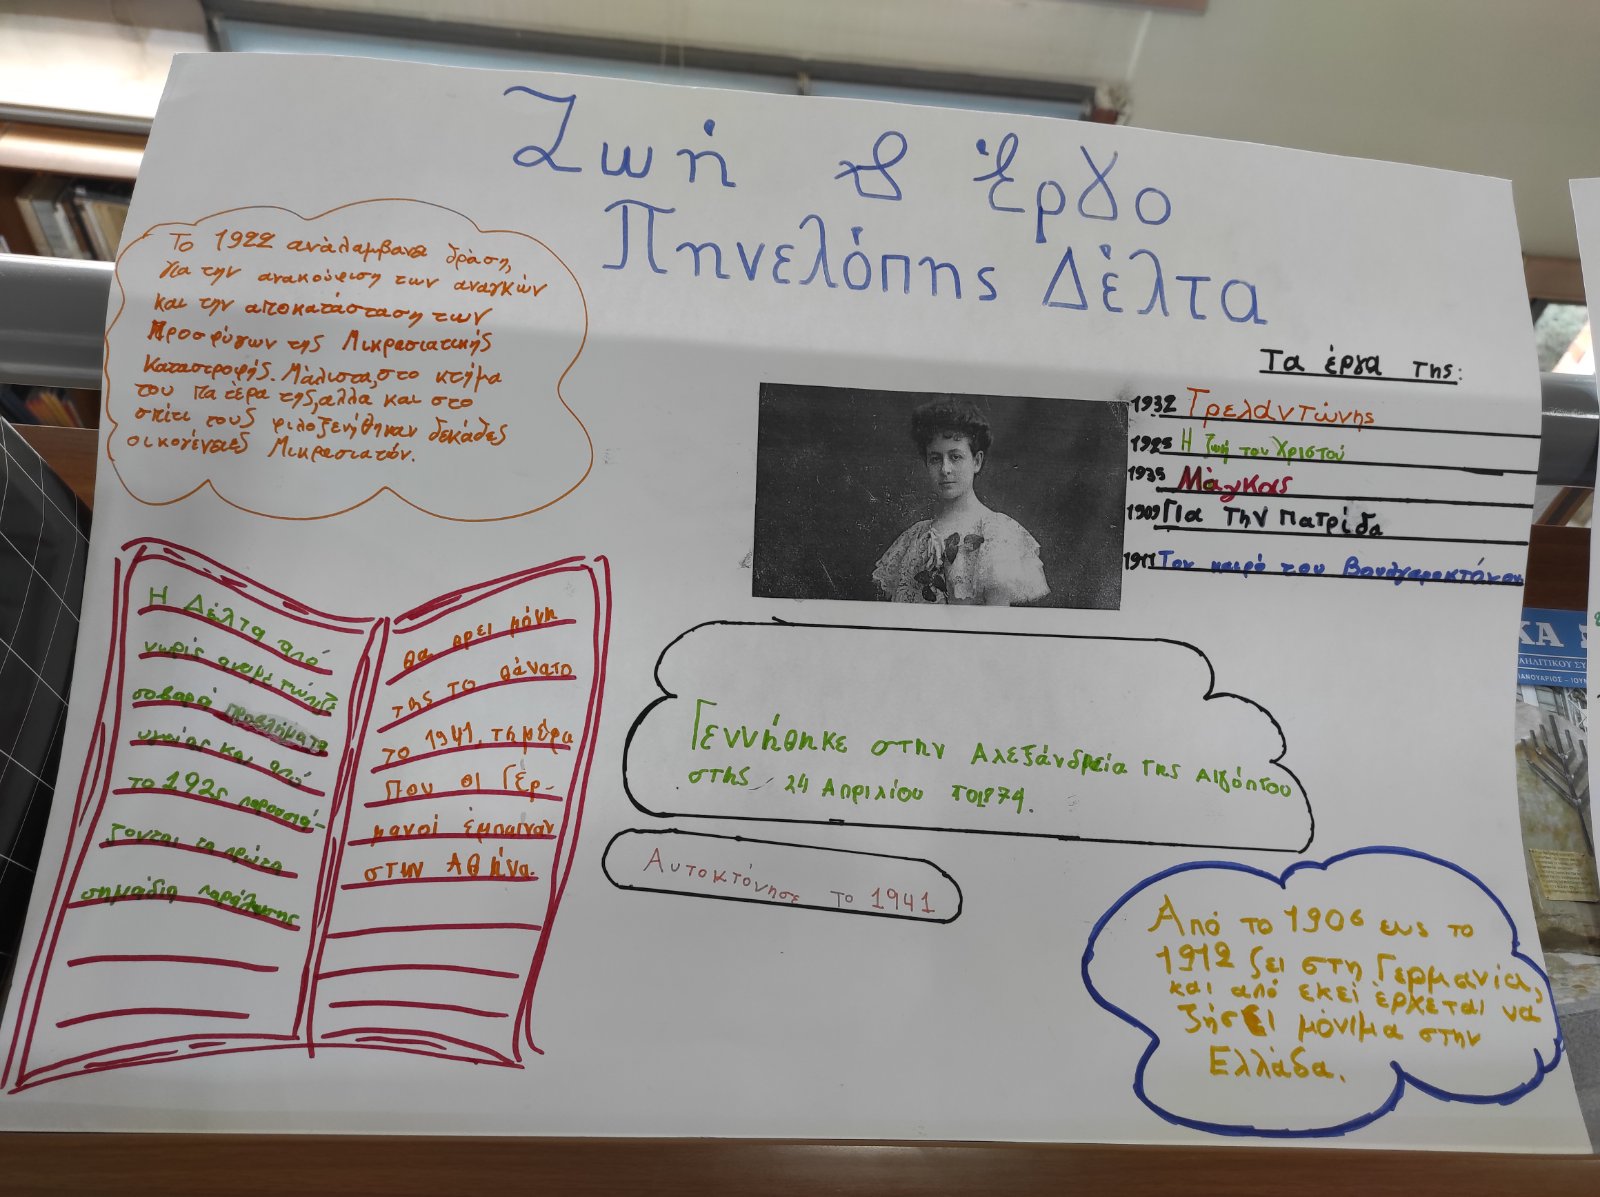 Ζωή & Έργο
Πηνελόπης Δέλτα
Το 1922 αναλαμβανε δράση,
για την ανακούφιση των αναγκών
και την αποκατάσταση των
Προσφύγων της Μικρασιατικής
Καταστροφής. Μάλιστα, στο κτήμα
του πατέρα της, αλλα και στο
σπίτι τους φιλοξενήθηκαν δεκάδες
οικογένειες Μικρασιατών.
Τα έργα της:
1932 Τρελαντώνης
1925 Η ζωή του Χριστού
1935 Μάγκας
1909 Για την πατρίδα
1911 Τον καιρό του Βουλγαροκτόνου
Η Δέλτα από
νωρίς αντιμετώπιζε
σοβαρά προβλήματα
υγείας και από
το 1925 παρουσιά-
ζονται τα πρώτα
σημάδια παράλυσης
θα βρει μόνη
της το θάνατο
το 1941, τη μέρα
που οι Γερ-
μανοί έμπαιναν
στην Αθήνα.
Γεννήθηκε στην Αλεξάνδρεια της Αιγύπτου
στης 24 Απριλίου το 1874.
Αυτοκτόνησε το 1941
Από το 1906 εως το
1912 ζει στη Γερμανία,
και από εκεί έρχεται να
ζήσει μόνιμα στην
Ελλάδα.
ΚΑ